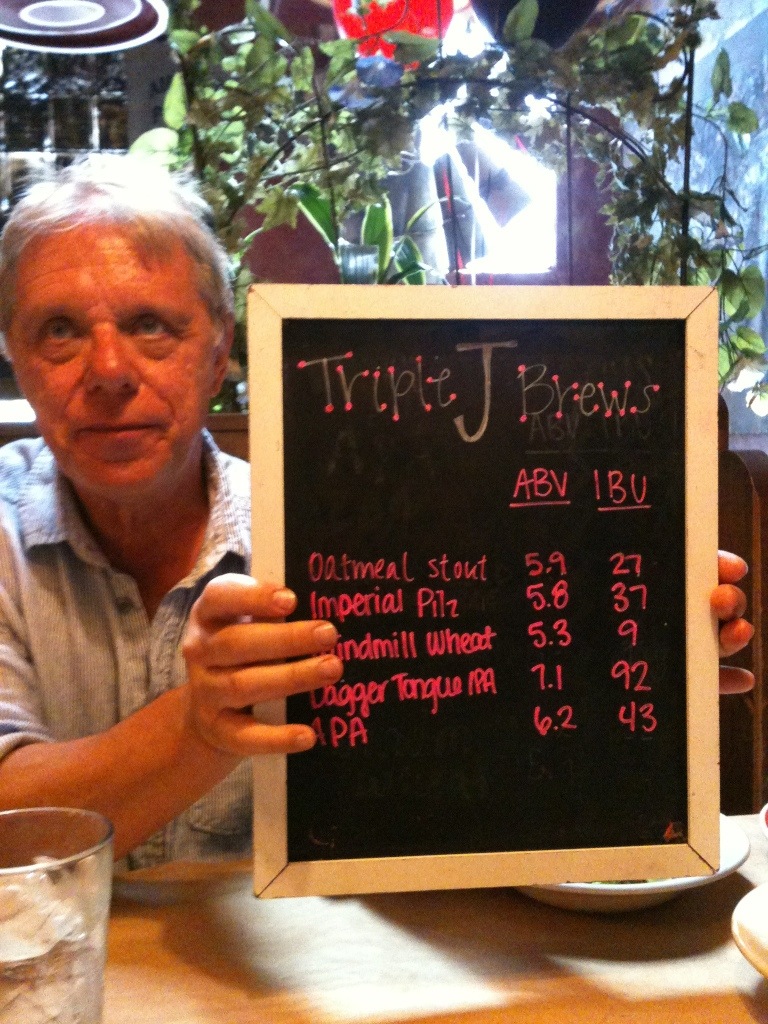 Triple J Brews
ABV IBU
Oatmeal stout 5.9 27
Imperial Pilz 5.8 37
indmill Wheat 5.3 9
Dagger Tongue IPA 7.1 92
APA 6.2 43